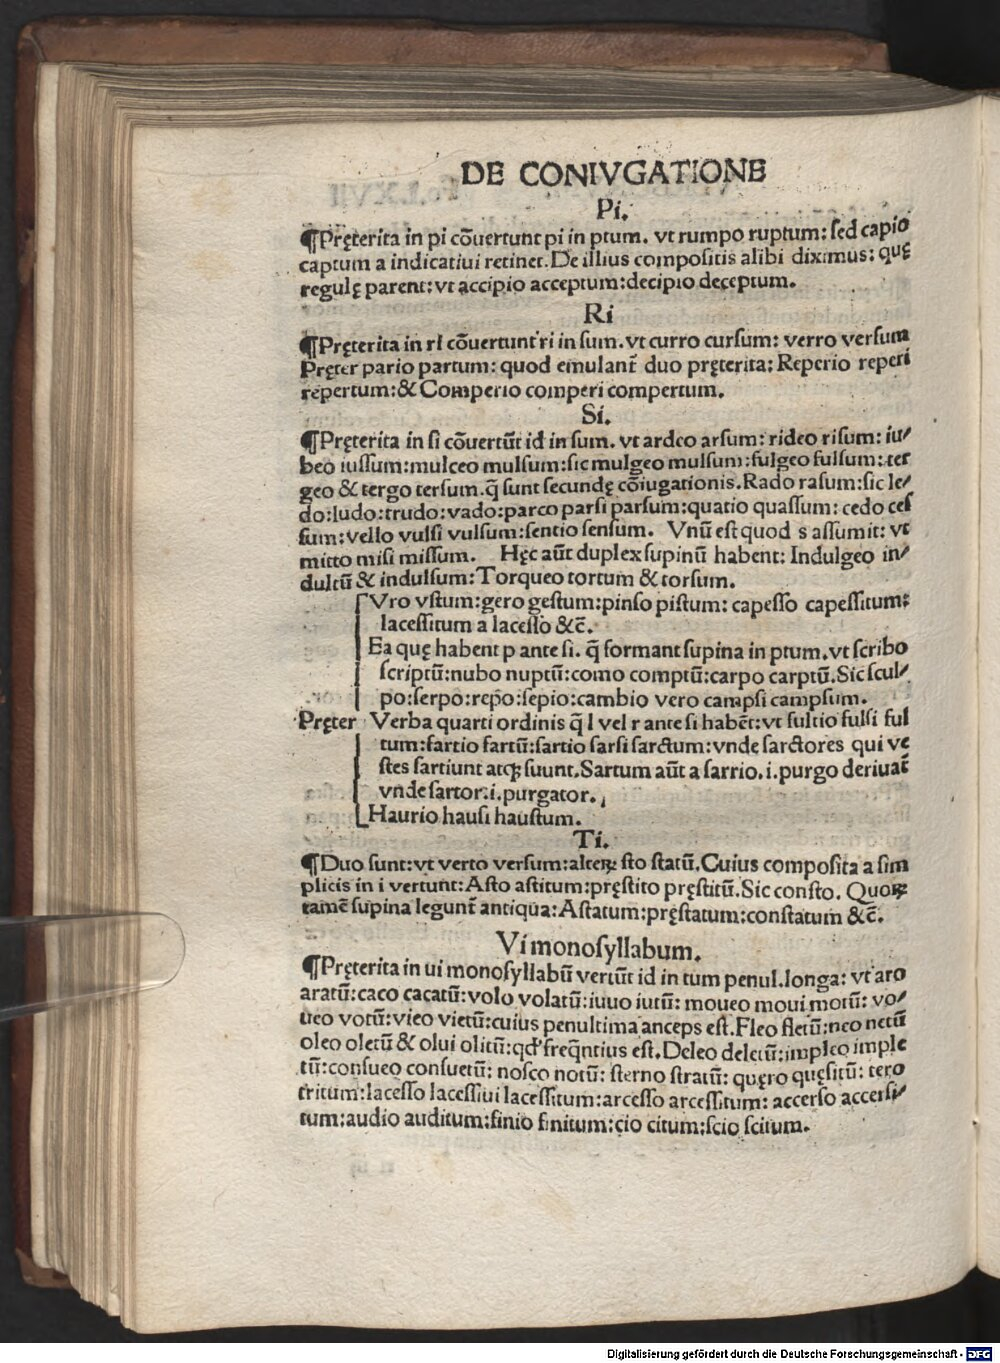 DE CONIVGATIONE
Pi.
¶Pręterita in pi cōuertunt pi in ptum. vt rumpo ruptum: ſed capio
captum a indicatiui retinet. De illius compoſitis alibi diximus: quę
regulę parent: vt accipio acceptum: decipio deceptum.
Ri
¶Pręterita in ri cōuertunt ri in ſum. vt curro curſum: verro verſum
Pręter pario partum: quod emulant̄ duo pręterita: Reperio reperi
repertum: & Comperio comperi compertum.
Si.
¶Pręterita in ſi cōuertūt id in ſum. vt ardeo arſum: rideo riſum: iu/
beo iuſſum: mulceo mulſum: ſic mulgeo mulſum: fulgeo fulſum: ter
geo & tergo terſum. q̄ ſunt ſecundę cōiugationis. Rado raſum: ſic le/
do: ludo: trudo: vado: parco parſi parſum: quatio quaſſum: cedo ceſ
ſum: vello vulſi vulſum: ſentio ſenſum. Vnū eſt quod s aſſumit: vt
mitto miſi miſſum. Hęc aūt duplex ſupinū habent: Indulgeo in/
dultū & indulſum: Torqueo tortum & torſum.
Vro vſtum: gero geſtum: pinſo piſtum: capeſſo capeſſitum:
laceſſitum a laceſſo &c̄.
Ea quę habent p ante ſi. q̄ formant ſupina in ptum. vt ſcribo
ſcriptū: nubo nuptū: como comptū: carpo carptū. Sic ſcul/
po: ſerpo: repo: ſepio: cambio vero campſi campſum.
Pręter Verba quarti ordinis q̄ l vel r ante ſi habēt: vt fultio fulſi ful
tum: fartio fartū: ſartio ſarſi ſarctum: vnde ſarctores qui ve
ſtes ſartiunt atqꝫ ſuunt. Sartum aūt a ſarrio. i. purgo deriuat̄
vnde ſartor. i. purgator.
Haurio hauſi hauſtum.
Ti.
¶Duo ſunt: vt verto verſum: alteꝝ ſto ſtatū. Cuius compoſita a ſim
plicis in i vertunt: Aſto aſtitum: pręſtito pręſtitū. Sic conſto. Quoꝝ
tamē ſupina legunt̄ antiqua: Aſtatum: pręſtatum: conſtatum &c̄.
Vi monoſyllabum.
¶Pręterita in ui monoſyllabū vertūt id in tum penul. longa: vt aro
aratū: caco cacatū: volo volatū: iuuo iutū: moueo moui motū: vo/
ueo votū: vieo vietū: cuius penultima anceps eſt. Fleo fletū: neo netū
oleo oletū & olui olitū: qđ freq̄ntius eſt. Deleo deletū: impleo imple
tū: conſueo conſuetū: noſco notū: ſterno ſtratū: quęro quęſitū: tero
tritum: laceſſo laceſſiui laceſſitum: arceſſo arceſſitum: accerſo accerſi/
tum: audio auditum: finio finitum: cio citum: ſcio ſcitum.
Digitalisierung gefördert durch die Deutsche Forschungsgemeinschaft - DFG